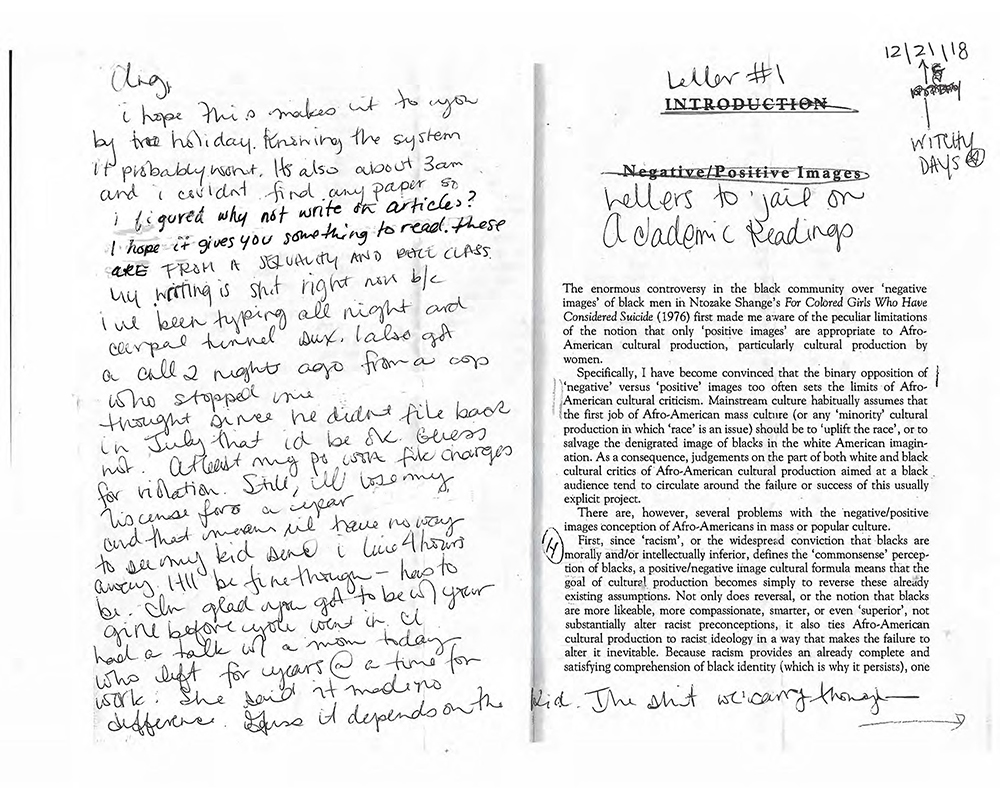 Ang,
i hope this makes it to you
by the holiday. Knowing the system
it probably wont. Its also about 3am
and i couldnt find any paper so
i figured why not write on articles?
I hope it gives you something to read. these
ARE FROM A SEXUALITY AND RACE CLASS.
My writing is shit right now b/c
i've been typing all night and
carpal tunnel sux. I also got
a call 2 nights ago from a cop
who stopped me
thought since he didnt file back
in July that id be ok. Guess
not. Atleast my po wont file charges
for violation. Still, ill lose my
liscense for a year
and that means ill have no way
to see my kid i live 4 hours
away. Itll be fine though – has to
be. Im glad you got to be w/ your
girl before you went in. I
had a talk w/ a mom today
who left for years @ a time for
work. She said it made no
difference. Guss it depends on the kid. The shit we carry though
12/21/18
WITCHY
DAYS
Letter #1
INTRODUCTION
Negative/Positive Images
Letters to jail on
Academic Readings
The enormous controversy in the black community over 'negative
images' of black men in Ntozake Shange's For Colored Girls Who Have
Considered Suicide (1976) first made me aware of the peculiar limitations
of the notion that only 'positive images' are appropriate to Afro-
American cultural production, particularly cultural production by
women.
Specifically, I have become convinced that the binary opposition of
'negative' versus 'positive' images too often sets the limits of Afro-
American cultural criticism. Mainstream culture habitually assumes that
the first job of Afro-American mass culture (or any 'minority' cultural
production in which 'race' is an issue) should be to 'uplift the race', or to
salvage the denigrated image of blacks in the white American imagin-
ation. As a consequence, judgements on the part of both white and black
cultural critics of Afro-American cultural production aimed at a black
audience tend to circulate around the failure or success of this usually
explicit project.
There are, however, several problems with the negative/positive
images conception of Afro-Americans in mass or popular culture.
First, since 'racism', or the widespread conviction that blacks are
morally and/or intellectually inferior, defines the 'commonsense' percep-
tion of blacks, a positive/negative image cultural formula means that the
goal of cultural production becomes simply to reverse these already
existing assumptions. Not only does reversal, or the notion that blacks
are more likeable, more compassionate, smarter, or even 'superior', not
substantially alter racist preconceptions, it also ties Afro-American
cultural production to racist ideology in a way that makes the failure to
alter it inevitable. Because racism provides an already complete and
satisfying comprehension of black identity (which is why it persists), one